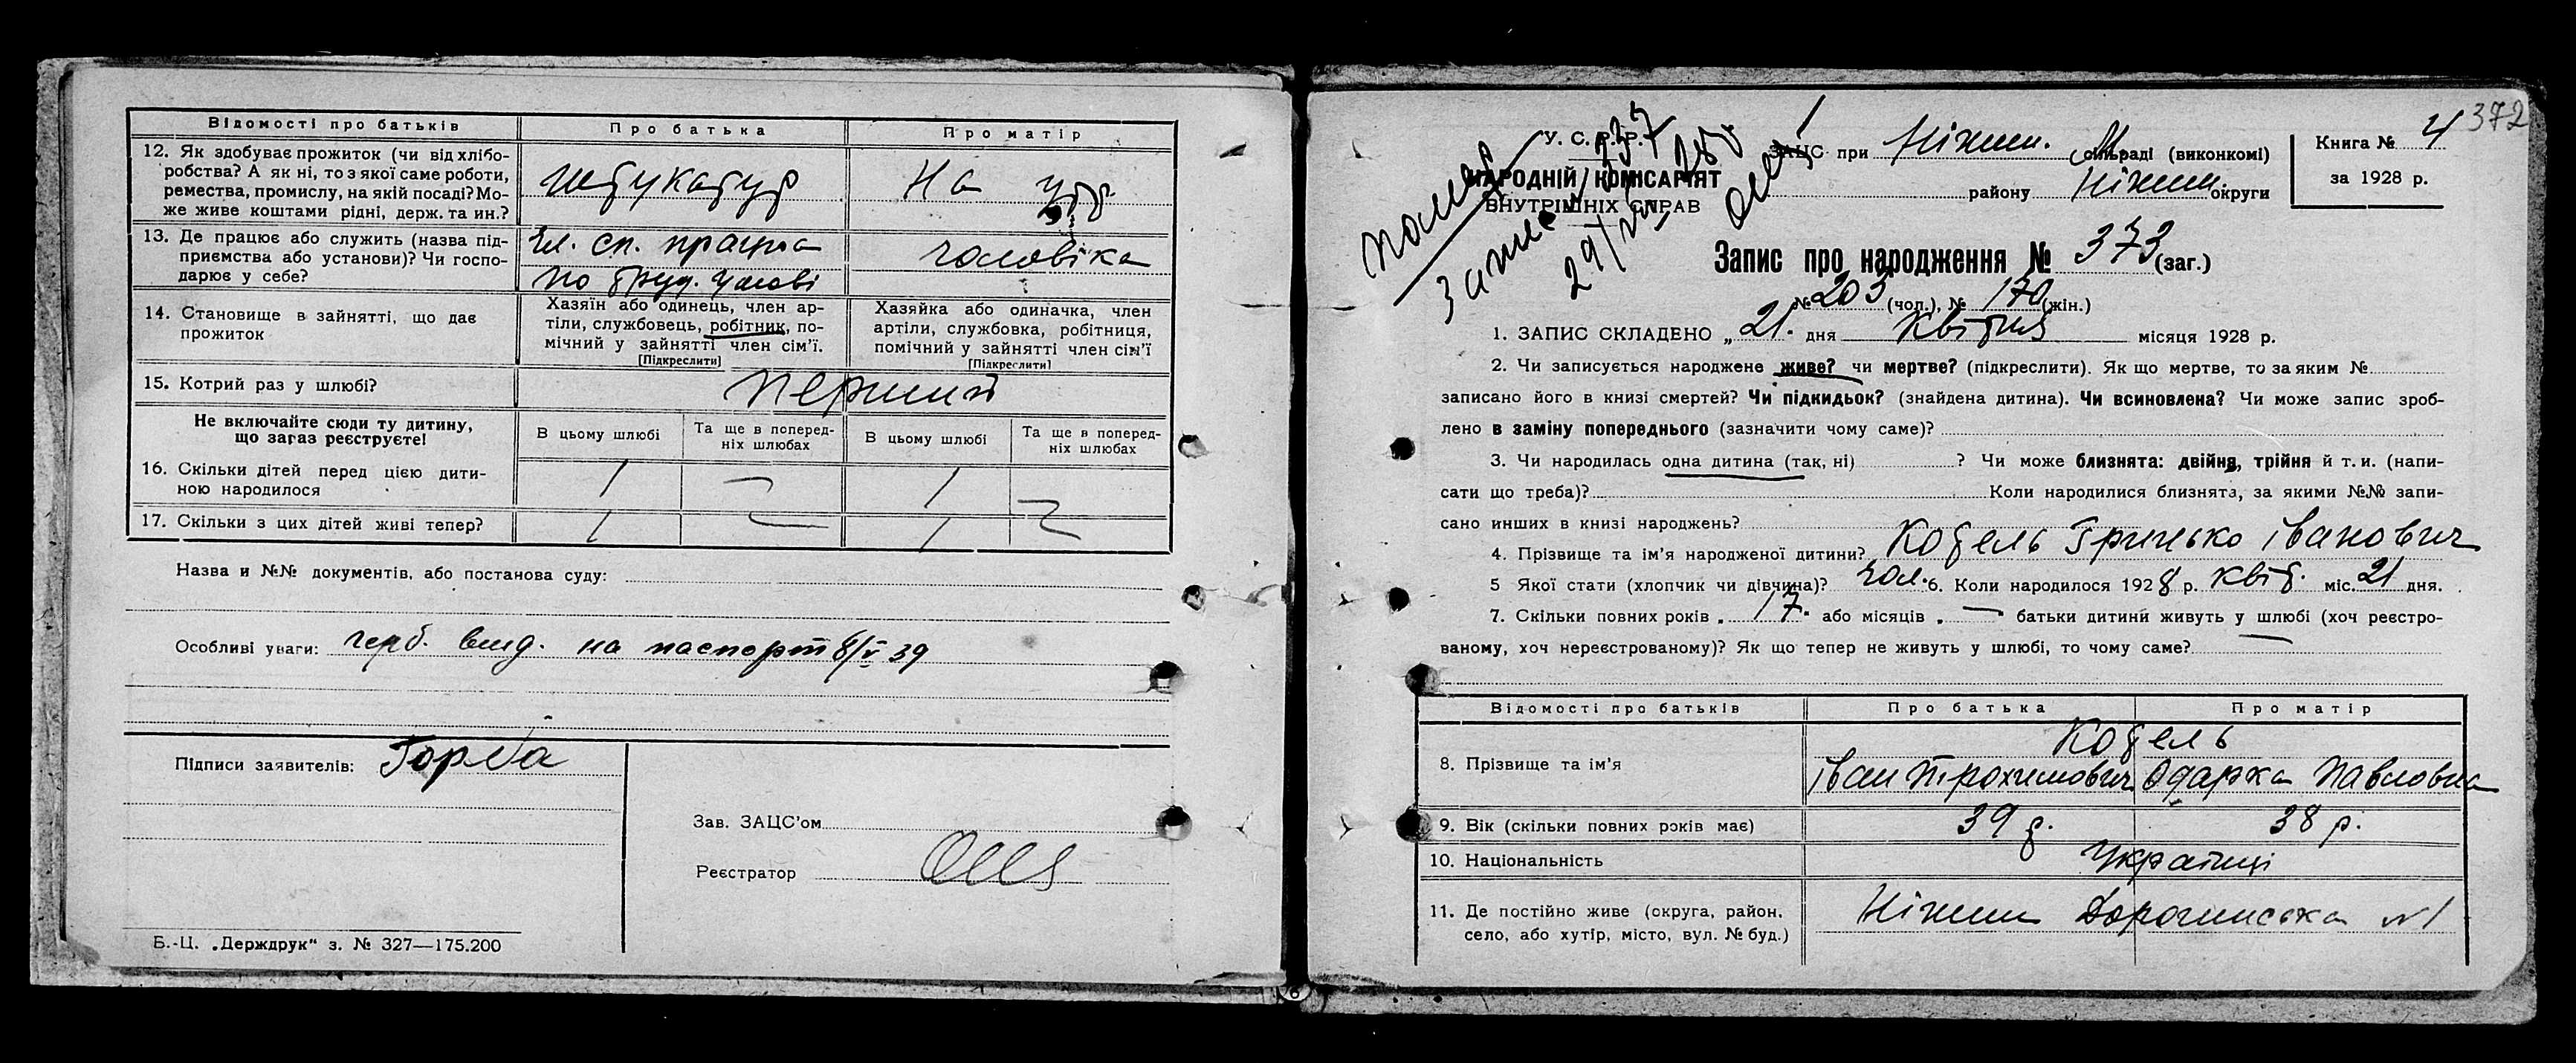 Відомості про батьків Про батька Про матір
12. Як здобуває прожиток (чи від хлібо-
робства? А як ні, то з якої саме роботи,
ремества, промислу, на якій посаді? Мо-
же живе коштами рідні, держ. та ин.?
штукатур На утр
13. Де працює або служить (назва під-
приємства або установи)? Чи госпо-
дарює у себе?
чл. сп. праці
по труд. умові
чоловіка
14. Становище в зайнятті, що дає
прожиток
Хазяїн або одинець, член ар-
тіли, службовець, робітник, по-
мічний у зайнятті член сім'ї.
[Підкреслити]
Хазяйка або одиначка, член
артіли, службовка, робітниця,
помічний у зайнятті член сім'ї
[Підкреслити]
15. Котрий раз у шлюбі? перший
Не включайте сюди ту дитину,
що зараз реєструєте!
В цьому шлюбі
Та ще в поперед-
ніх шлюбах
В цьому шлюбі
Та ще в поперед-
ніх шлюбах
16. Скільки дітей перед цією дити-
ною народилося
1 — 1 —
17. Скільки з цих дітей живі тепер? 1 — 1 —
Назва и №№ документів, або постанова суду:
Особливі уваги: герб. вид. на паспорт 8/V 39
Підписи заявителів: Горба
Зав. ЗАЦС'ом
Реєстратор
Б.-Ц. „Держдрук“ з. № 327—175.200
372
У. С. Р. Р.
НАРОДНІЙ КОМІСАРІЯТ
ВНУТРІШНІХ СПРАВ
ЗАЦС при Ніжин. сільраді (виконкомі)
району Ніжин. округи
Книга № 4
за 1928 р.
Запис про народження № 373 (заг.)
№ 203 (чол.), № 170 (жін.)
1. ЗАПИС СКЛАДЕНО „21. дня Квітня місяця 1928 р.
2. Чи записується народжене живе? чи мертве? (підкреслити). Як що мертве, то за яким №
записано його в книзі смертей? Чи підкидьок? (знайдена дитина). Чи всиновлена? Чи може запис зроб-
лено в заміну попереднього (зазначити чому саме)?
3. Чи народилась одна дитина (так, ні) ? Чи може близнята: двійня, трійня й т. и. (напи-
сати що треба)? Коли народилися близнята, за якими №№ запи-
сано инших в книзі народжень?
4. Прізвище та ім'я народженої дитини? Котель Гринько Іванович
5 Якої стати (хлопчик чи дівчина)? чол. 6. Коли народилося 1928 р. квіт. міс. 21 дня.
7. Скільки повних років 17. або місяців — батьки дитини живуть у шлюбі (хоч реєстро-
ваному, хоч нереєстрованому)? Як що тепер не живуть у шлюбі, то чому саме? —
Відомості про батьків Про батька Про матір
Котель
8. Прізвище та ім'я Іван Трохимович Одарка Павловна
9. Вік (скільки повних років має) 39 р. 38 р.
10. Національність Українці
11. Де постійно живе (округа, район,
село, або хутір, місто, вул. № буд.)
Ніжин Дорогинська №1